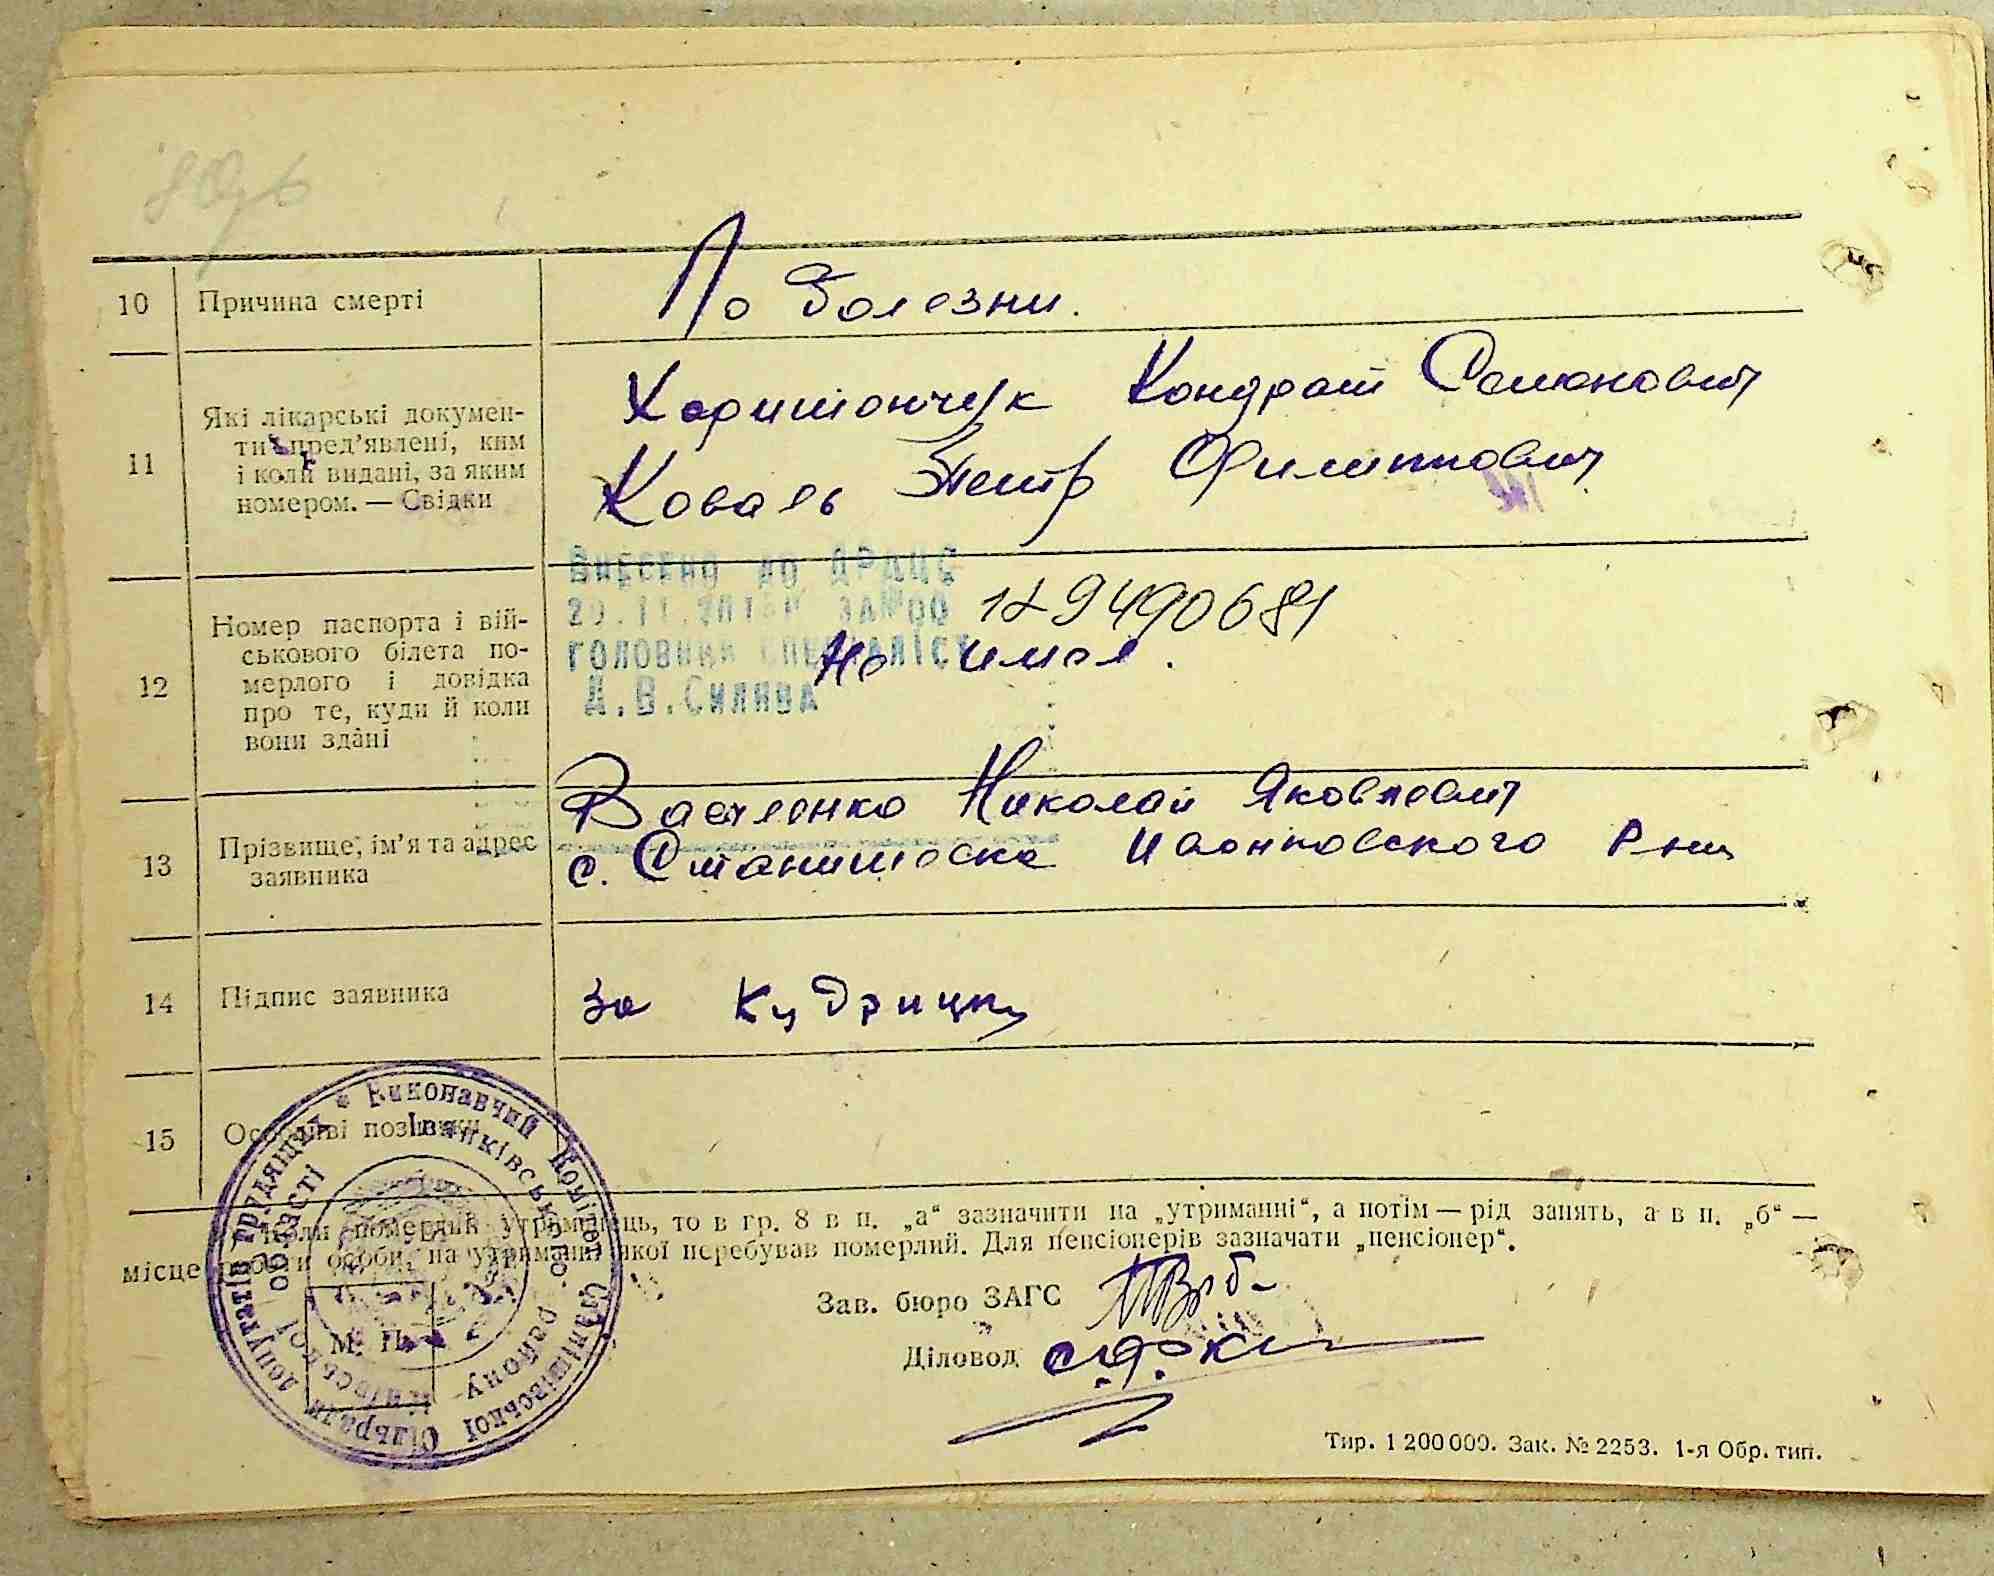 10 Причина смерті По болезни.
11 Які лікарські докумен-
ти пред'явлені, ким
і коли видані, за яким
номером. — Свідки
Харитончук Кондрат Семенович
Коваль Петр Филиппович
ВНЕСЕНО ДО ДРАЦС
ГОЛОВНИЙ СПЕЦІАЛІСТ
Д.В.Силива
Не имел.
12 Номер паспорта і вій-
ськового білета по-
мерлого і довідка
про те, куди й коли
вони здані
13 Прізвище, ім'я та адрес
заявника
Николай Яковлевич
с. Станишовка Иванковского р-на
14 Підпис заявника за
15 Особливі позначки
Виконавчий Комітет Станішівської Сільради депутатів трудящих
Іванківського району Київської області
Коли померлий утриманець, то в гр. 8 в п. „а“ зазначити на „утриманні“, а потім — рід занять, а в п. „б“ —
місце роботи особи, на утриманні якої перебував померлий. Для пенсіонерів зазначати „пенсіонер“.
М. П.
Зав. бюро ЗАГС
Діловод
Тир. 1 200 000. Зак. № 2253. 1-я Обр. тип.